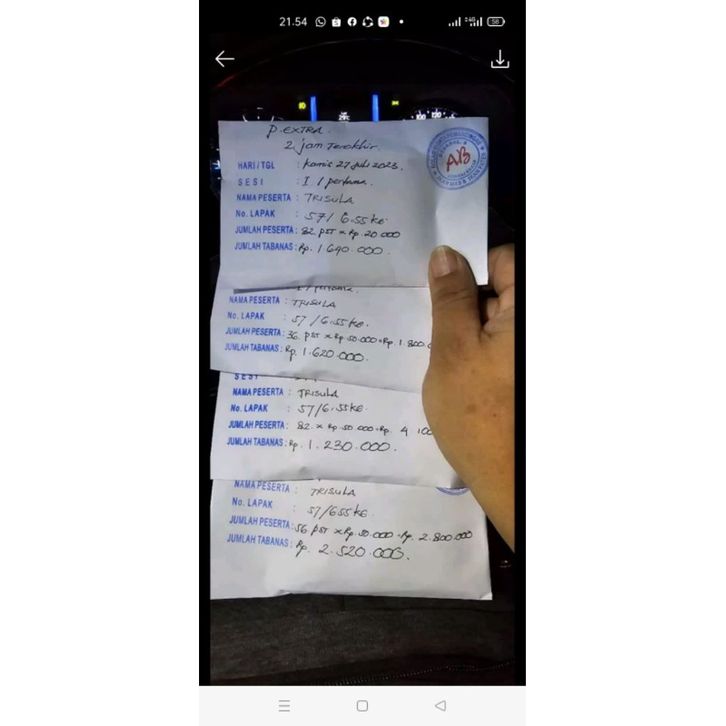 21.54
58
P. EXTRA.
2 jam Terakhir.
HARI / TGL : Kamis 27 Juli 2023.
SESI : I / pertama.
NAMA PESERTA : TRISULA
No. LAPAK : 57 / 6.55 ke
JUMLAH PESERTA : 82 PST x Rp. 20 000
JUMLAH TABANAS : Rp. 1 640 . 000 .
AB
I / pertama.
NAMA PESERTA : TRISULA
No. LAPAK : 57 / 6.55 ke.
JUMLAH PESERTA : 36 PST x Rp. 50.000 = Rp. 1.800.0
JUMLAH TABANAS : Rp. 1.620.000.
SESI
NAMA PESERTA : TRISULA
No. LAPAK : 57/6.55 ke.
JUMLAH PESERTA : 82 x Rp. 50 000 = Rp. 4 100
JUMLAH TABANAS : Rp. 1.230.000.
NAMA PESERTA : TRISULA
No. LAPAK : 57/655 ke.
JUMLAH PESERTA : 56 PST x Rp. 50.000 = Rp. 2.800.000
JUMLAH TABANAS : Rp. 2.520.000.